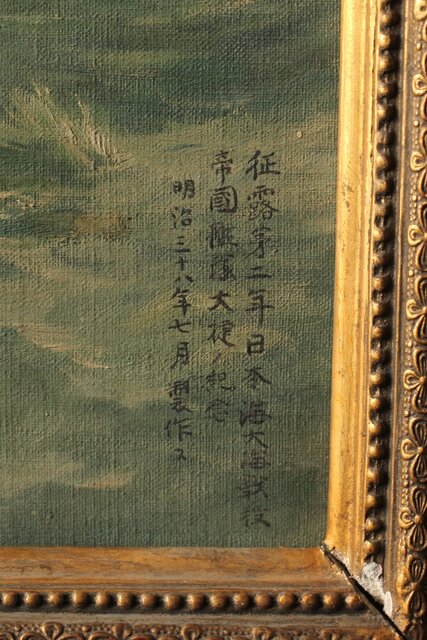 征露第二年日本海大海戦役
帝國艦隊大捷ノ紀念
明治三十八年七月製作ス